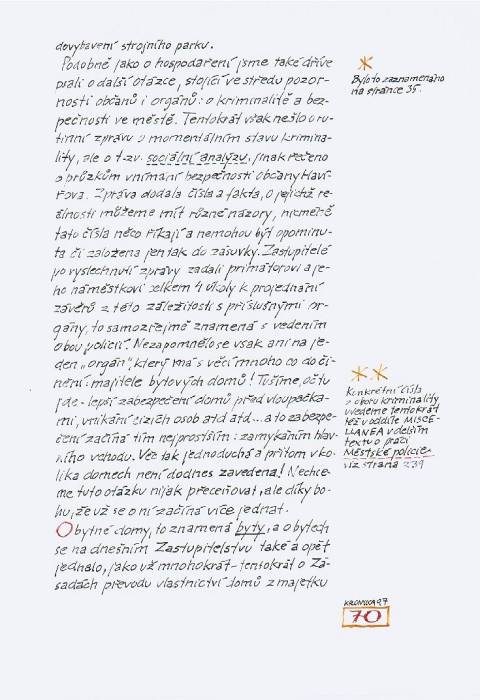 dovybavení strojního parku.
Podobně jako o hospodaření jsme také dříve
psali o další otázce, stojící ve středu pozor-
nosti občanů i orgánů: o kriminalitě a bez-
pečnosti ve městě. Tentokrát však nešlo o ru-
tinní zprávu o momentálním stavu krimina-
lity, ale o t.zv. sociální analýzu, jinak řečeno
o průzkum vnímání bezpečnosti občany Haví-
řova. Zpráva dodala čísla a fakta, o jejichž re-
álnosti můžeme mít různé názory, nicméně
tato čísla něco říkají a nemohou být opominu-
ta či založena jen tak do zásuvky. Zastupitelé
po vyslechnutí zprávy zadali primátorovi a je-
ho náměstkovi celkem 4 úkoly k projednání
závěrů z této záležitosti s příslušnými or-
gány, to samozřejmě znamená s vedením
obou policií. Nezapomnělo se však ani na je-
den „orgán", který má s věcí mnoho co do či-
nění: majitele bytových domů! Tušíme, oč tu
jde - lepší zabezpečení domů před vloupačka-
mi, vnikání cizích osob atd atd... a to zabezpe-
čení začíná tím nejprostším: zamykáním hlav-
ního vchodu. Věc tak jednoduchá a přitom v ko-
lika domech není dodnes zavedena! Nechce-
me tuto otázku nijak přeceňovat, ale díky bo-
hu, že už se o ní začíná více jednat.
Obytné domy, to znamená byty, a o bytech
se na dnešním Zastupitelstvu také a opět
jednalo, jako už mnohokrát - tentokrát o Zá-
sadách převodu vlastnictví domů z majetku
*
Bylo to zaznamenáno
na stránce 35.
* *
Konkrétní čísla
z oboru kriminality
uvedeme tentokrát
též v oddíle MISCE-
LLANEA v dalším
textu o práci
MĚSTSKÉ policie
viz strana 239
KRONIKA 97
70